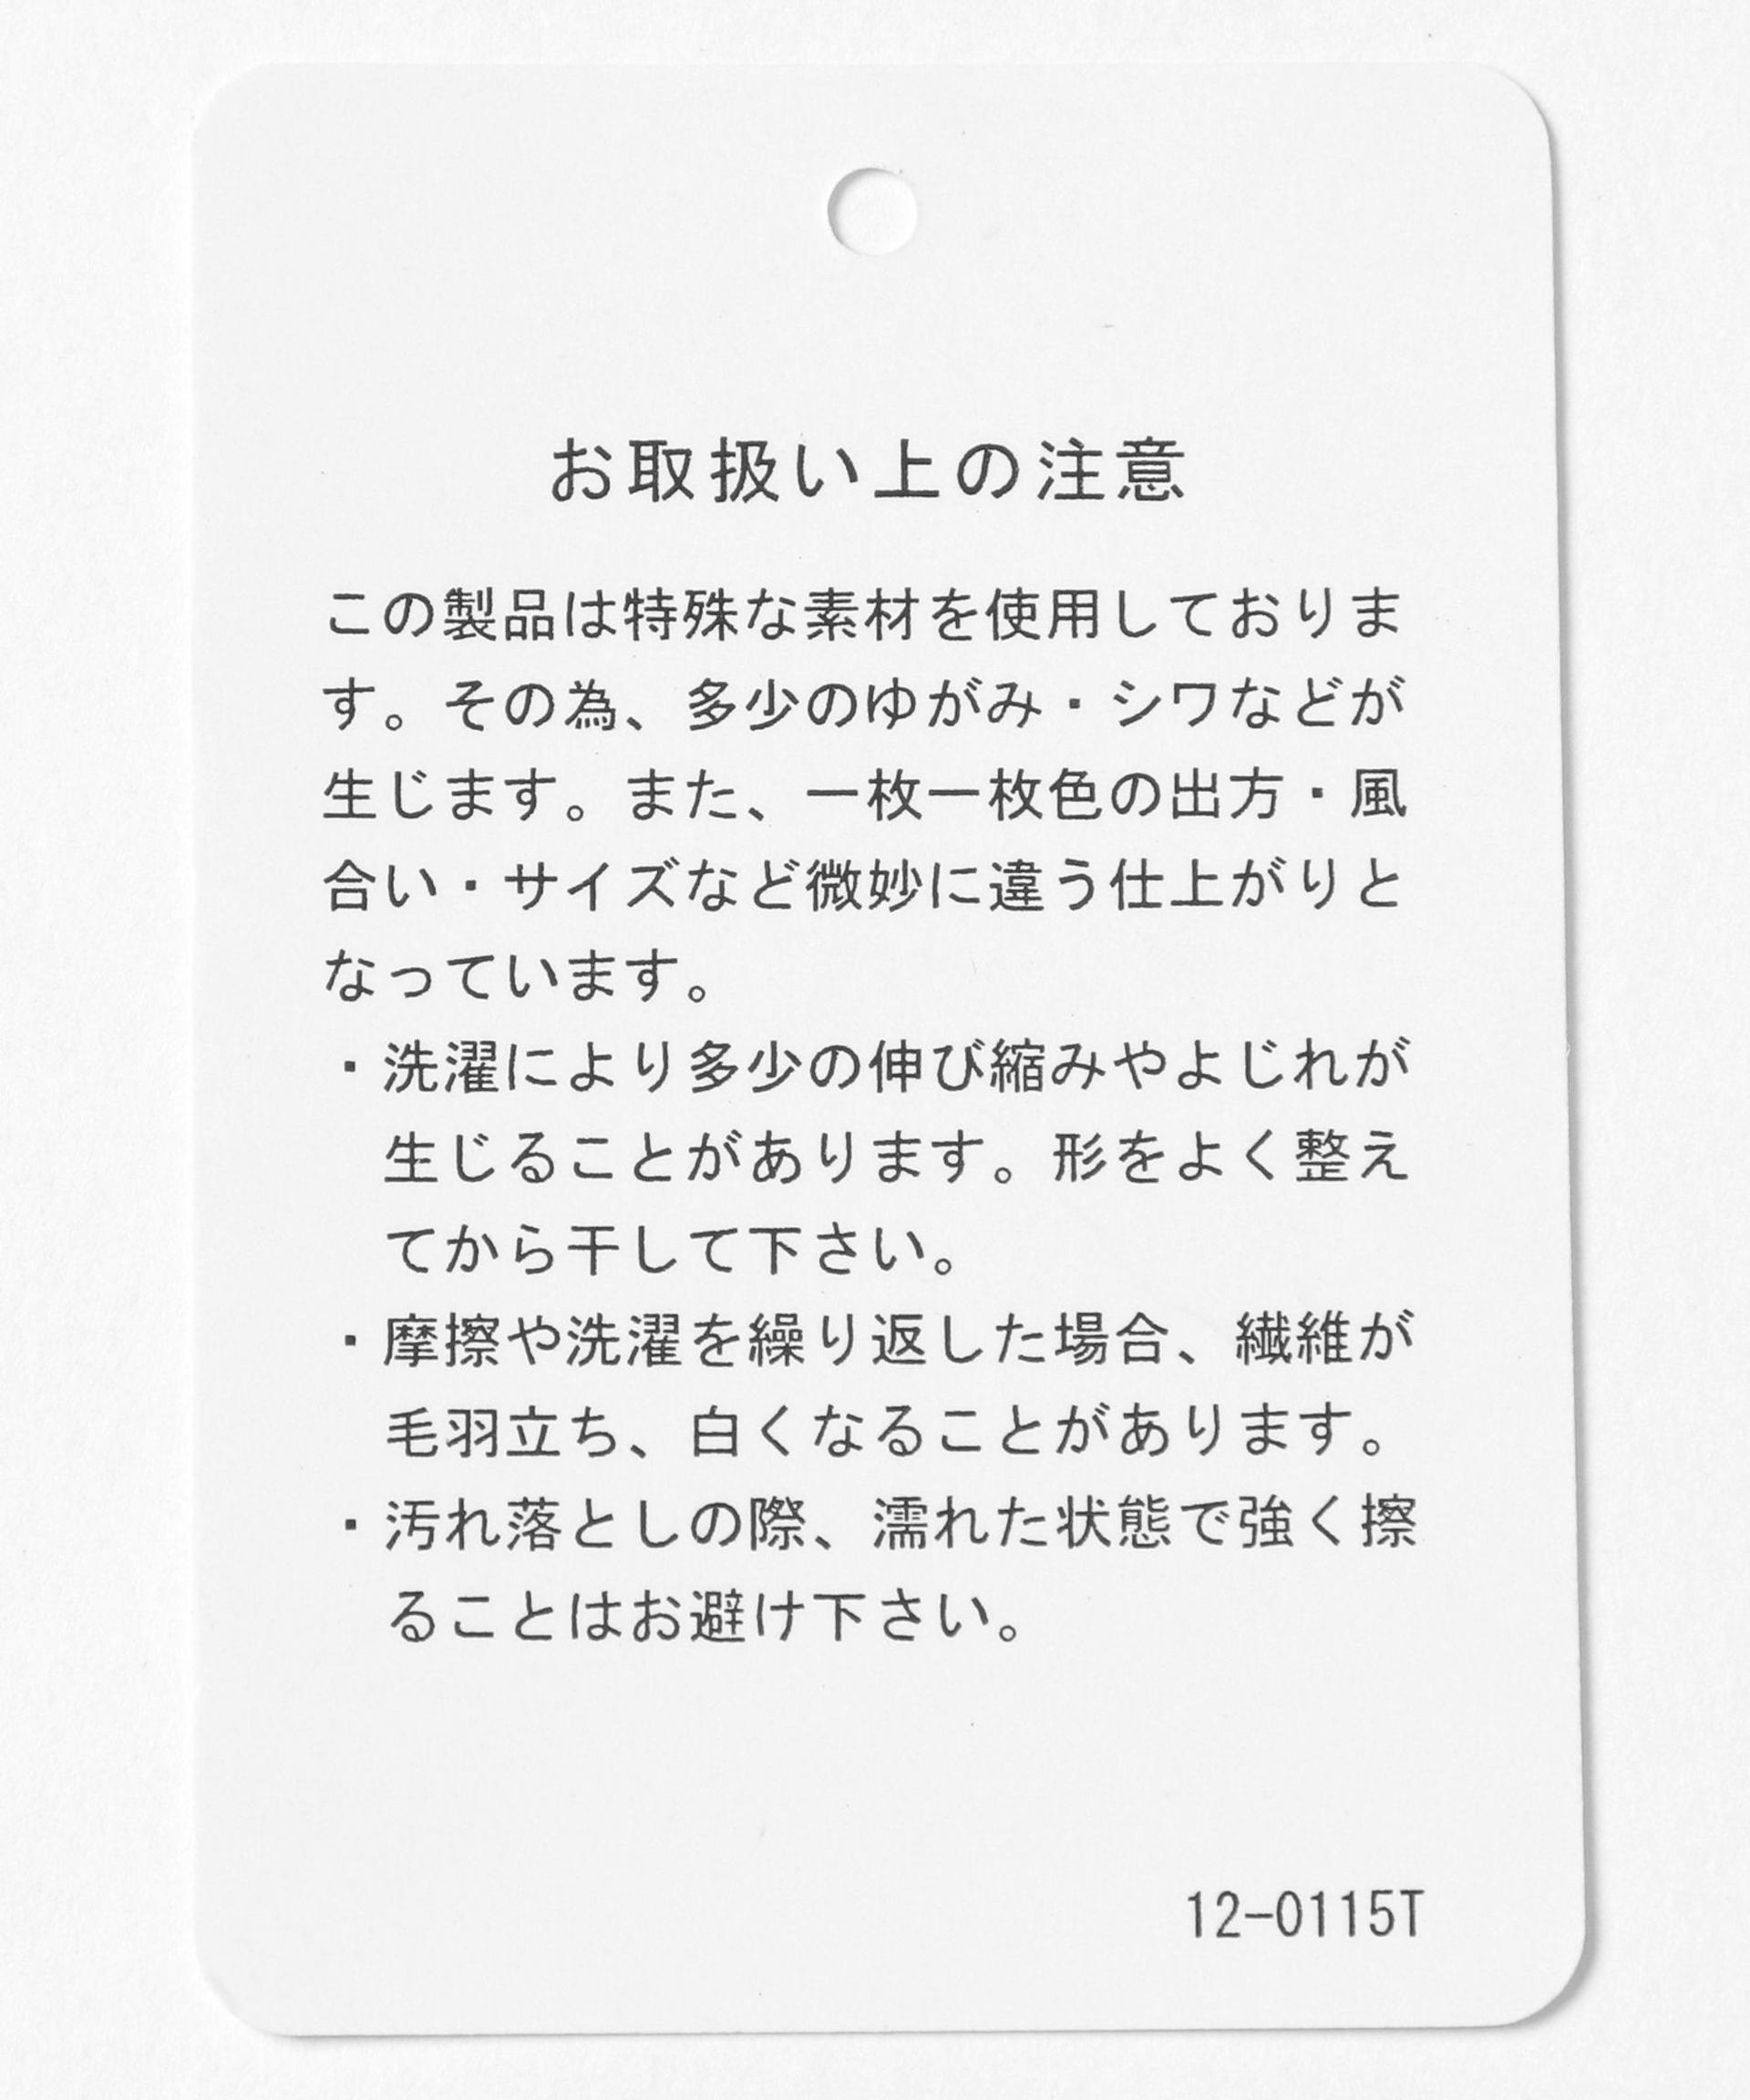 お取扱い上の注意
この製品は特殊な素材を使用しておりま
す。その為、多少のゆがみ・シワなどが
生じます。また、一枚一枚色の出方・風
合い・サイズなど微妙に違う仕上がりと
なっています。
・洗濯により多少の伸び縮みやよじれが
生じることがあります。形をよく整え
てから干して下さい。
・摩擦や洗濯を繰り返した場合、繊維が
毛羽立ち、白くなることがあります。
・汚れ落としの際、濡れた状態で強く擦
ることはお避け下さい。
12-0115T